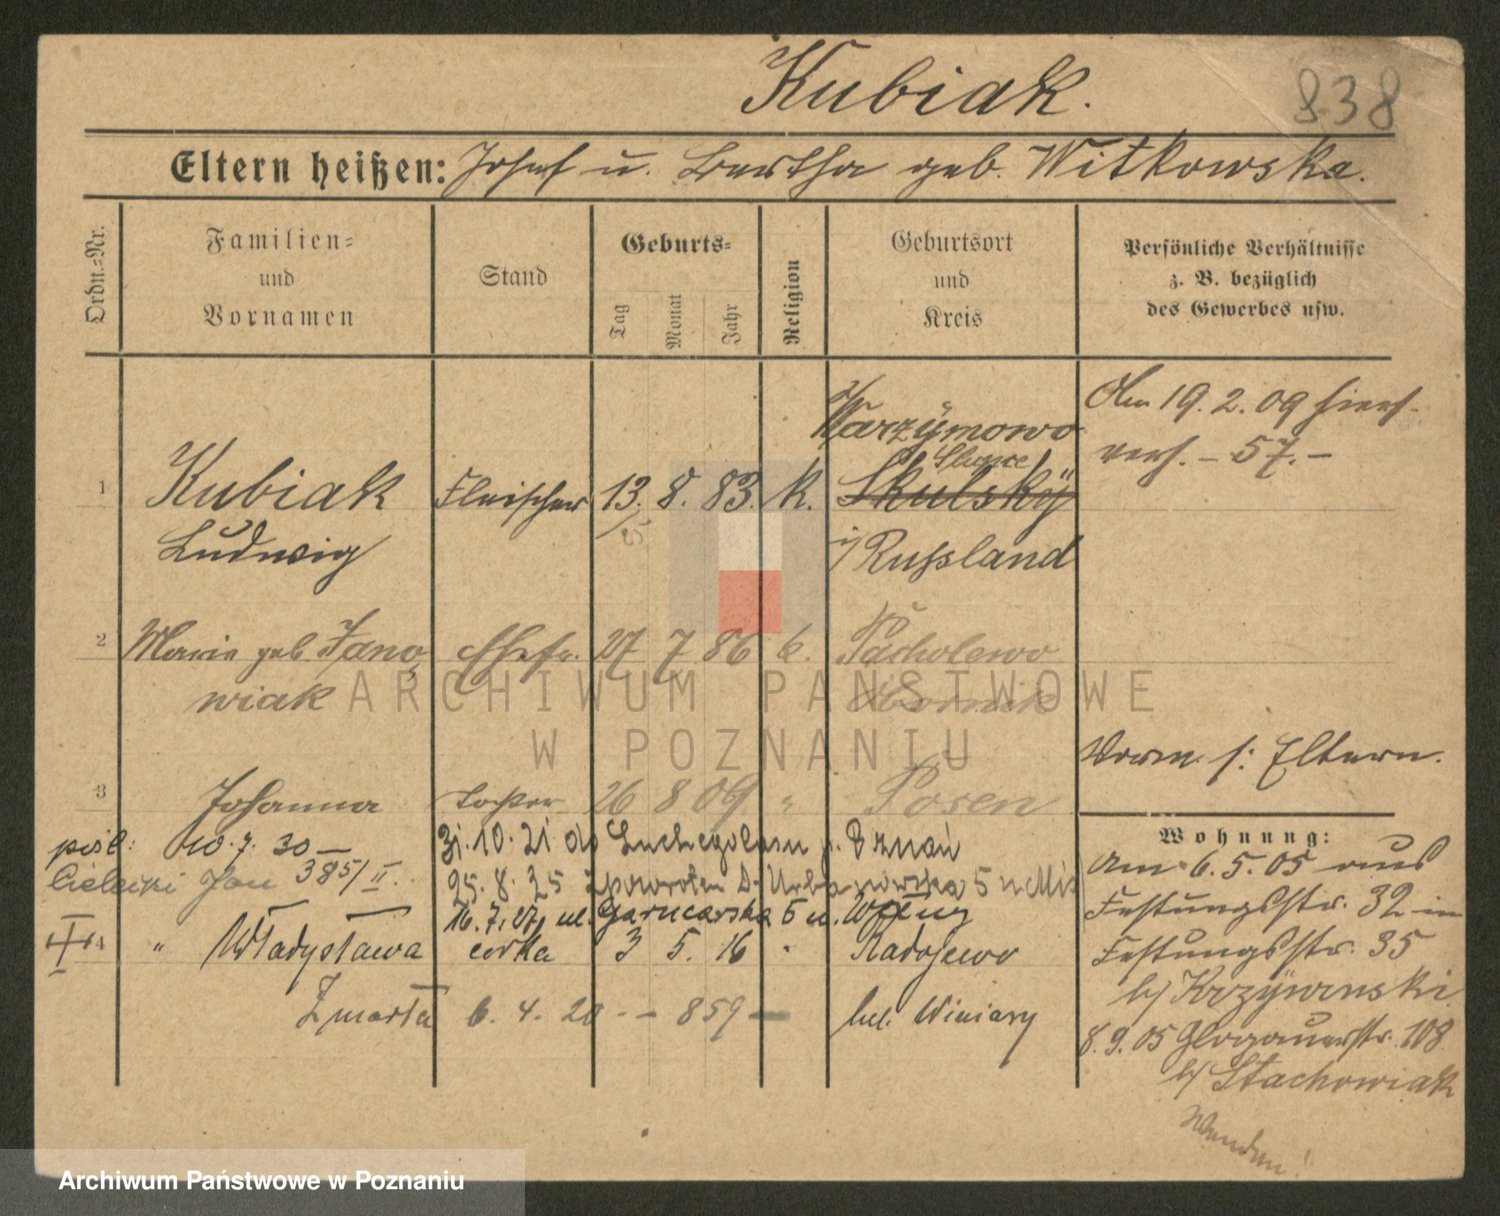 Kubiak.
838
Eltern heißen: Josef u. Bertha geb. Witkowska.
Ordn.-Nr.
Familien-
und
Vornamen
Stand
Geburts-
Tag
Monat
Jahr
Religion
Geburtsort
und
Kreis
Persönliche Verhältnisse
z. B. bezüglich
des Gewerbes usw.
Am 19.2.09 hiers.
verh. – 57. –
Warzymowo
Slupce
1 Kubiak Fleischer 13. 8. 83. K. Skulsky
25
Ludwig
i/ Russland
2 Maria geb. Jano- Ehefr. 27 7 86 k. Pacholewo
wiak Obornik
Vorm. s: Eltern.
3 Johanna Tochter 26 8 09 " Posen
Wohnung:
10.7.30 — 31.10.21 do
Jan 385/II. 25.8.25 5
16.7.27 ul. Garncarska 5 u.
Am 6.5.05 aus
Festungsstr. 32 in
4 " Władysława córka 3 5. 16 " Radojewo
Festungsstr. 35
b/ Krzywinski
Zmarła 6. 4. 20 -- 859 — Winiary
8.9.05 Glogauerstr. 108
b/ Stachowiak
Wenden!
ARCHIWUM PAŃSTWOWE
W POZNANIU
Archiwum Państwowe w Poznaniu